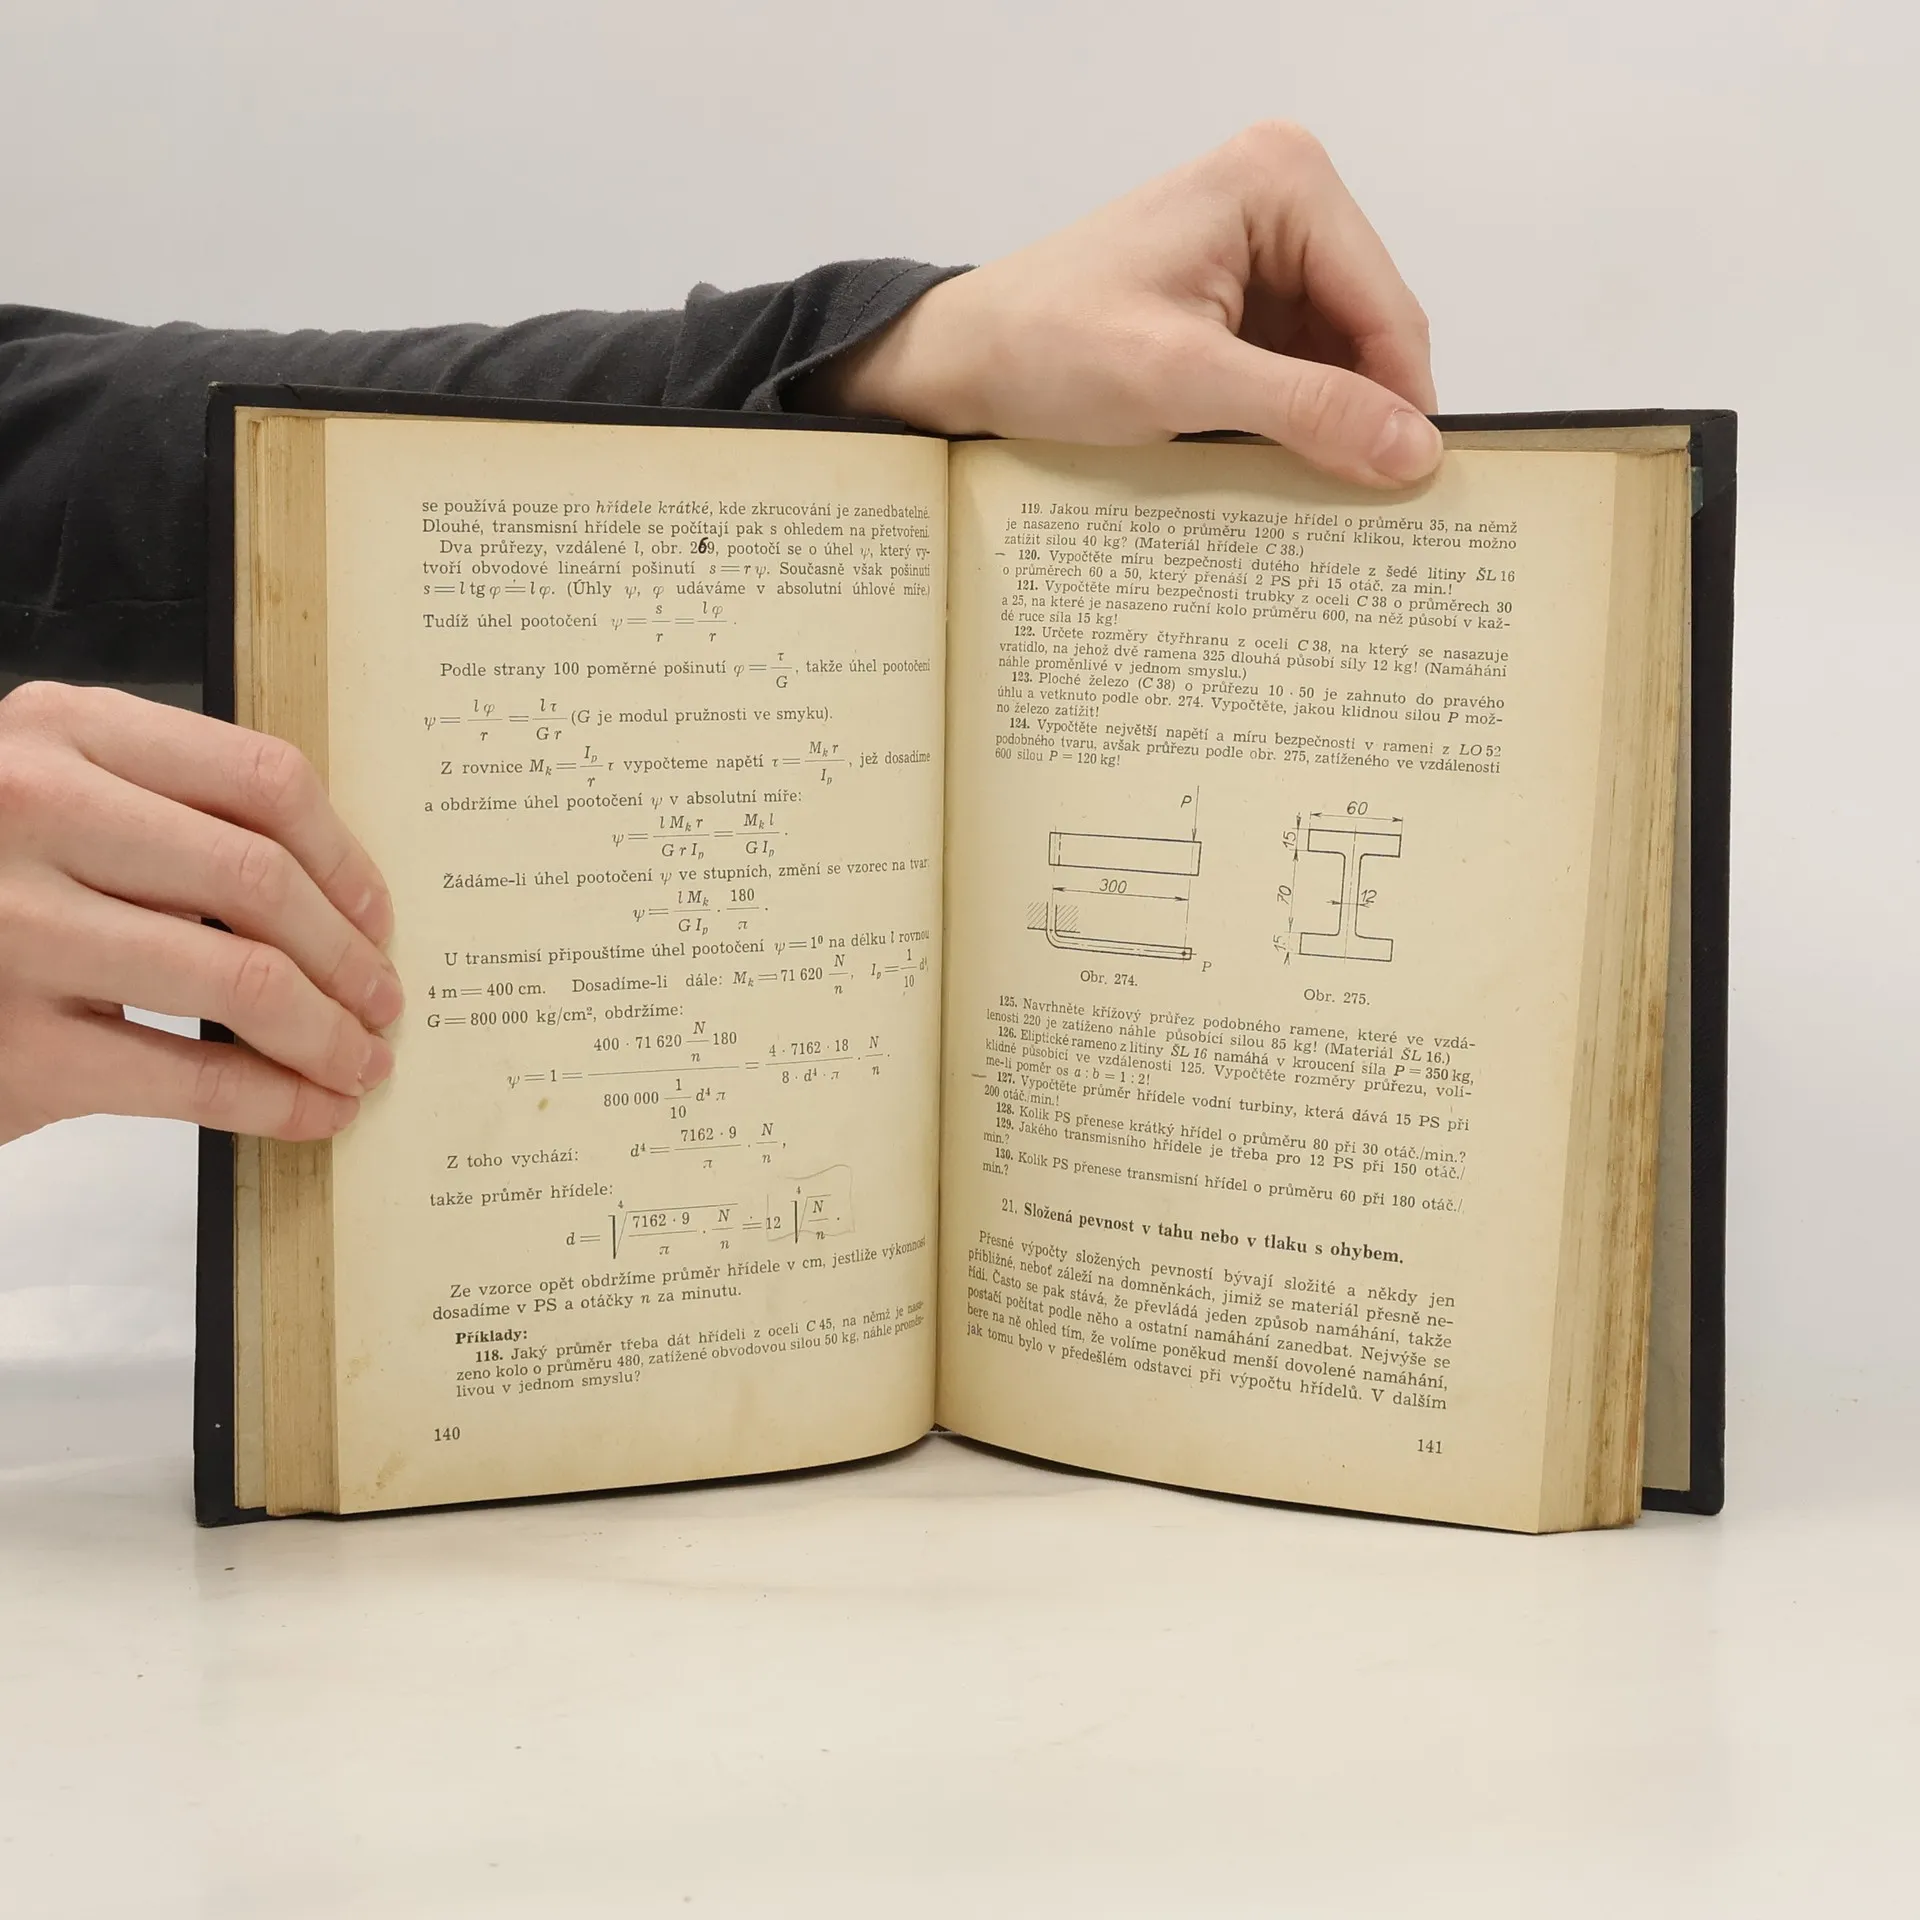 se používá pouze pro hřídele krátké, kde zkrucování je zanedbatelné.
Dlouhé, transmisní hřídele se počítají pak s ohledem na přetvoření.
Dva průřezy, vzdálené l, obr. 269, pootočí se o úhel ψ, který vy-
tvoří obvodové lineární pošinutí s = r ψ. Současně však pošinutí
s = l tg φ ≐ l φ. (Úhly ψ, φ udáváme v absolutní úhlové míře.)
Tudíž úhel pootočení ψ = s/r = l φ/r .
Podle strany 100 poměrné pošinutí φ = τ/G , takže úhel pootočení
ψ = l φ/r = l τ/G r (G je modul pružnosti ve smyku).
Z rovnice Mₖ = Iₚ/r τ vypočteme napětí τ = Mₖ r/Iₚ , jež dosadíme
a obdržíme úhel pootočení ψ v absolutní míře:
ψ = l Mₖ r/G r Iₚ = Mₖ l/G Iₚ .
Žádáme-li úhel pootočení ψ ve stupních, změní se vzorec na tvar:
ψ = l Mₖ/G Iₚ · 180/π .
U transmisí připouštíme úhel pootočení ψ = 1⁰ na délku l rovnou
4 m = 400 cm. Dosadíme-li dále: Mₖ = 71 620 N/n , Iₚ = 1/10 d⁴,
G = 800 000 kg/cm², obdržíme:
ψ = 1 = 400 · 71 620 N/n 180 / 800 000 1/10 d⁴ π = 4 · 7162 · 18/8 · d⁴ · π · N/n .
Z toho vychází: d⁴ = 7162 · 9/π · N/n ,
takže průměr hřídele:
d = ⁴√(7162 · 9/π · N/n) ≐ 12 ⁴√(N/n) .
Ze vzorce opět obdržíme průměr hřídele v cm, jestliže výkonnost
dosadíme v PS a otáčky n za minutu.
Příklady:
118. Jaký průměr třeba dát hřídeli z oceli C 45, na němž je nasa-
zeno kolo o průměru 480, zatížené obvodovou silou 50 kg, náhle proměn-
livou v jednom smyslu?
140
119. Jakou míru bezpečnosti vykazuje hřídel o průměru 35, na němž
je nasazeno ruční kolo o průměru 1200 s ruční klikou, kterou možno
zatížit silou 40 kg? (Materiál hřídele C 38.)
— 120. Vypočtěte míru bezpečnosti dutého hřídele z šedé litiny ŠL 16
o průměrech 60 a 50, který přenáší 2 PS při 15 otáč. za min.!
121. Vypočtěte míru bezpečnosti trubky z oceli C 38 o průměrech 30
a 25, na které je nasazeno ruční kolo průměru 600, na něž působí v kaž-
dé ruce síla 15 kg!
122. Určete rozměry čtyřhranu z oceli C 38, na který se nasazuje
vratidlo, na jehož dvě ramena 325 dlouhá působí síly 12 kg! (Namáhání
náhle proměnlivé v jednom smyslu.)
123. Ploché železo (C 38) o průřezu 10 · 50 je zahnuto do pravého
úhlu a vetknuto podle obr. 274. Vypočtěte, jakou klidnou silou P mož-
no železo zatížit!
124. Vypočtěte největší napětí a míru bezpečnosti v rameni z LO 52
podobného tvaru, avšak průřezu podle obr. 275, zatíženého ve vzdálenosti
600 silou P = 120 kg!
P
300
P
Obr. 274.
60
15
70
12
15
Obr. 275.
125. Navrhněte křížový průřez podobného ramene, které ve vzdá-
lenosti 220 je zatíženo náhle působící silou 85 kg! (Materiál ŠL 16.)
126. Eliptické rameno z litiny ŠL 16 namáhá v kroucení síla P = 350 kg,
klidně působící ve vzdálenosti 125. Vypočtěte rozměry průřezu, volí-
me-li poměr os a : b = 1 : 2!
— 127. Vypočtěte průměr hřídele vodní turbiny, která dává 15 PS při
200 otáč./min.!
128. Kolik PS přenese krátký hřídel o průměru 80 při 30 otáč./min.?
129. Jakého transmisního hřídele je třeba pro 12 PS při 150 otáč./
min.?
130. Kolik PS přenese transmisní hřídel o průměru 60 při 180 otáč./
min.?
21. Složená pevnost v tahu nebo v tlaku s ohybem.
Přesné výpočty složených pevností bývají složité a někdy jen
přibližné, neboť záleží na domněnkách, jimiž se materiál přesně ne-
řídí. Často se pak stává, že převládá jeden způsob namáhání, takže
postačí počítat podle něho a ostatní namáhání zanedbat. Nejvýše se
bere na ně ohled tím, že volíme poněkud menší dovolené namáhání,
jak tomu bylo v předešlém odstavci při výpočtu hřídelů. V dalším
141